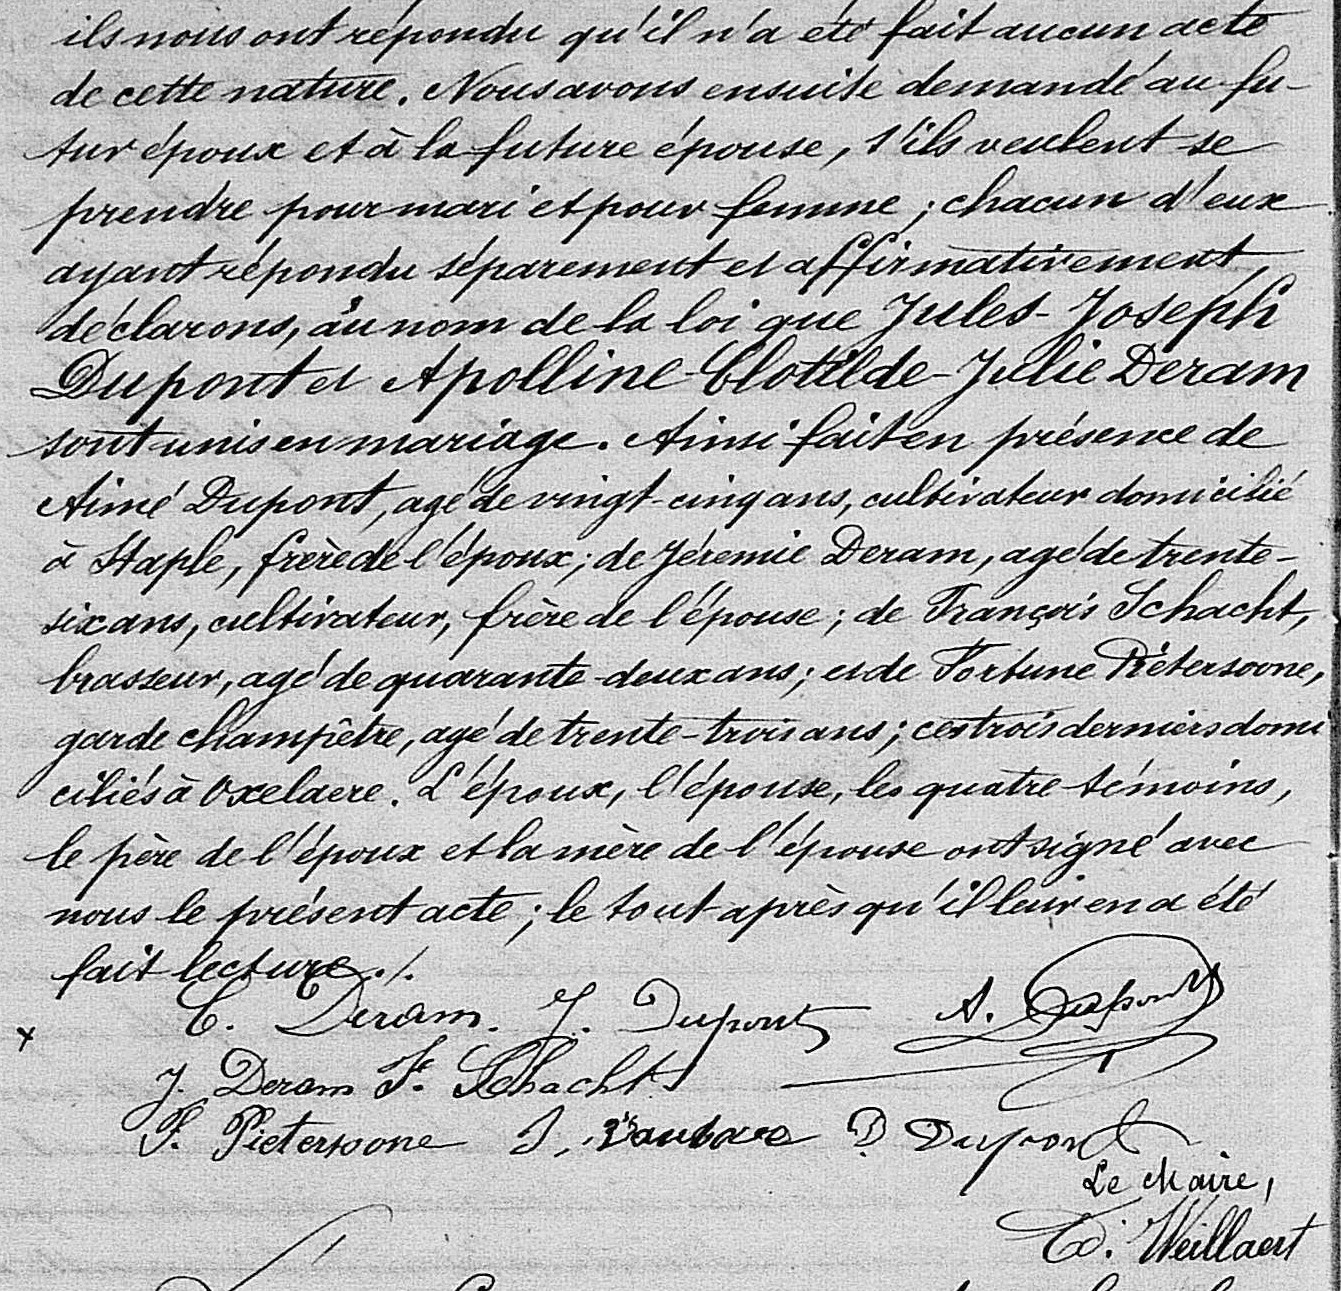 ils nous ont répondu qu'il n'a été fait aucun acte
de cette nature. Nous avons ensuite demandé au fu-
tur époux et à la future épouse, s'ils veulent se
prendre pour mari et pour femme ; chacun d'eux
ayant répondu séparement et affirmativement,
déclarons, au nom de la loi que Jules-Joseph
Dupont et Apolline-Clotilde-Julie Deram
sont unis en mariage. Ainsi fait en présence de
Aimé Dupont, agé de vingt-cinq ans, cultivateur domicilié
à Staple, frère de l'époux ; de Jéremie Deram, agé de trente-
six ans, cultivateur, frère de l'épouse ; de François Schacht,
brasseur, agé de quarante-deux ans ; et de Fortune Piétersoone,
garde champêtre, agé de trente-trois ans ; ces trois derniers domi
ciliés à Oxelaere. L'époux, l'épouse, les quatre témoins,
le père de l'époux et la mère de l'épouse ont signé avec
nous le présent acte ; le tout après qu'il leur en a été
fait lecture ./.
C. Deram. J. Dupont A. Dupont
x
J. Deram F. Schacht
F. Pietersoone D Dupont
Le Maire,
Weillaert